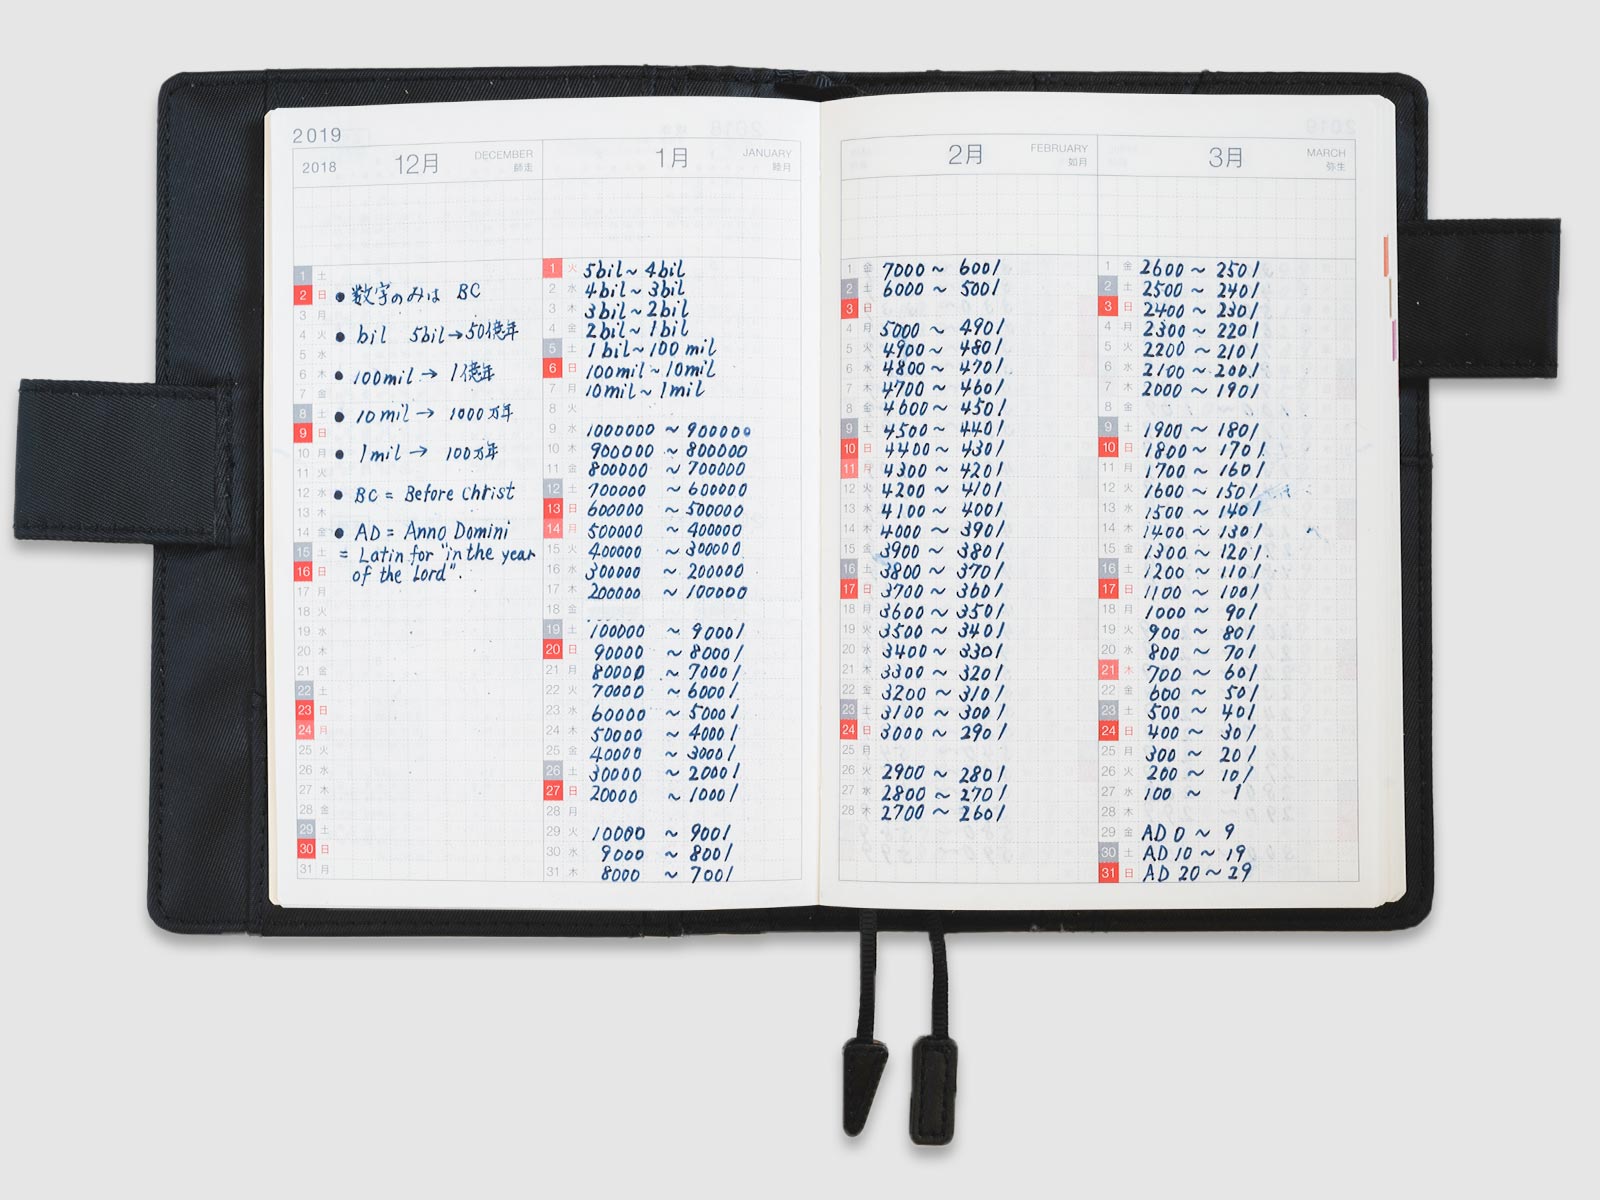 2019
2018 12月 DECEMBER 師走
1 土
2 日 ● 数字のみは BC
3 月
4 火 ● bil 5bil→50億年
5 水
6 木 ● 100mil → 1億年
7 金
8 土 ● 10mil → 1000万年
9 日
10 月 ● 1mil → 100万年
11 火
12 水 ● BC = Before Christ
13 木
14 金 ● AD = Anno Domini
15 土 = Latin for "in the year
16 日 of the Lord".
17 月
18 火
19 水
20 木
21 金
22 土
23 日
24 月
25 火
26 水
27 木
28 金
29 土
30 日
31 月
1月 JANUARY 睦月
1 火 5bil ~ 4bil
2 水 4bil ~ 3bil
3 木 3bil ~ 2bil
4 金 2bil ~ 1bil
5 土 1bil ~ 100mil
6 日 100mil ~ 10mil
7 月 10mil ~ 1mil
8 火
9 水 1000000 ~ 900000
10 木 900000 ~ 800000
11 金 800000 ~ 700000
12 土 700000 ~ 600000
13 日 600000 ~ 500000
14 月 500000 ~ 400000
15 火 400000 ~ 300000
16 水 300000 ~ 200000
17 木 200000 ~ 100000
18 金
19 土 100000 ~ 90001
20 日 90000 ~ 80001
21 月 80000 ~ 70001
22 火 70000 ~ 60001
23 水 60000 ~ 50001
24 木 50000 ~ 40001
25 金 40000 ~ 30001
26 土 30000 ~ 20001
27 日 20000 ~ 10001
28 月
29 火 10000 ~ 9001
30 水 9000 ~ 8001
31 木 8000 ~ 7001
2月 FEBRUARY 如月
1 金 7000 ~ 6001
2 土 6000 ~ 5001
3 日
4 月 5000 ~ 4901
5 火 4900 ~ 4801
6 水 4800 ~ 4701
7 木 4700 ~ 4601
8 金 4600 ~ 4501
9 土 4500 ~ 4401
10 日 4400 ~ 4301
11 月 4300 ~ 4201
12 火 4200 ~ 4101
13 水 4100 ~ 4001
14 木 4000 ~ 3901
15 金 3900 ~ 3801
16 土 3800 ~ 3701
17 日 3700 ~ 3601
18 月 3600 ~ 3501
19 火 3500 ~ 3401
20 水 3400 ~ 3301
21 木 3300 ~ 3201
22 金 3200 ~ 3101
23 土 3100 ~ 3001
24 日 3000 ~ 2901
25 月
26 火 2900 ~ 2801
27 水 2800 ~ 2701
28 木 2700 ~ 2601
3月 MARCH 弥生
1 金 2600 ~ 2501
2 土 2500 ~ 2401
3 日 2400 ~ 2301
4 月 2300 ~ 2201
5 火 2200 ~ 2101
6 水 2100 ~ 2001
7 木 2000 ~ 1901
8 金
9 土 1900 ~ 1801
10 日 1800 ~ 1701
11 月 1700 ~ 1601
12 火 1600 ~ 1501
13 水 1500 ~ 1401
14 木 1400 ~ 1301
15 金 1300 ~ 1201
16 土 1200 ~ 1101
17 日 1100 ~ 1001
18 月 1000 ~ 901
19 火 900 ~ 801
20 水 800 ~ 701
21 木 700 ~ 601
22 金 600 ~ 501
23 土 500 ~ 401
24 日 400 ~ 301
25 月 300 ~ 201
26 火 200 ~ 101
27 水 100 ~ 1
28 木
29 金 AD 0 ~ 9
30 土 AD 10 ~ 19
31 日 AD 20 ~ 29